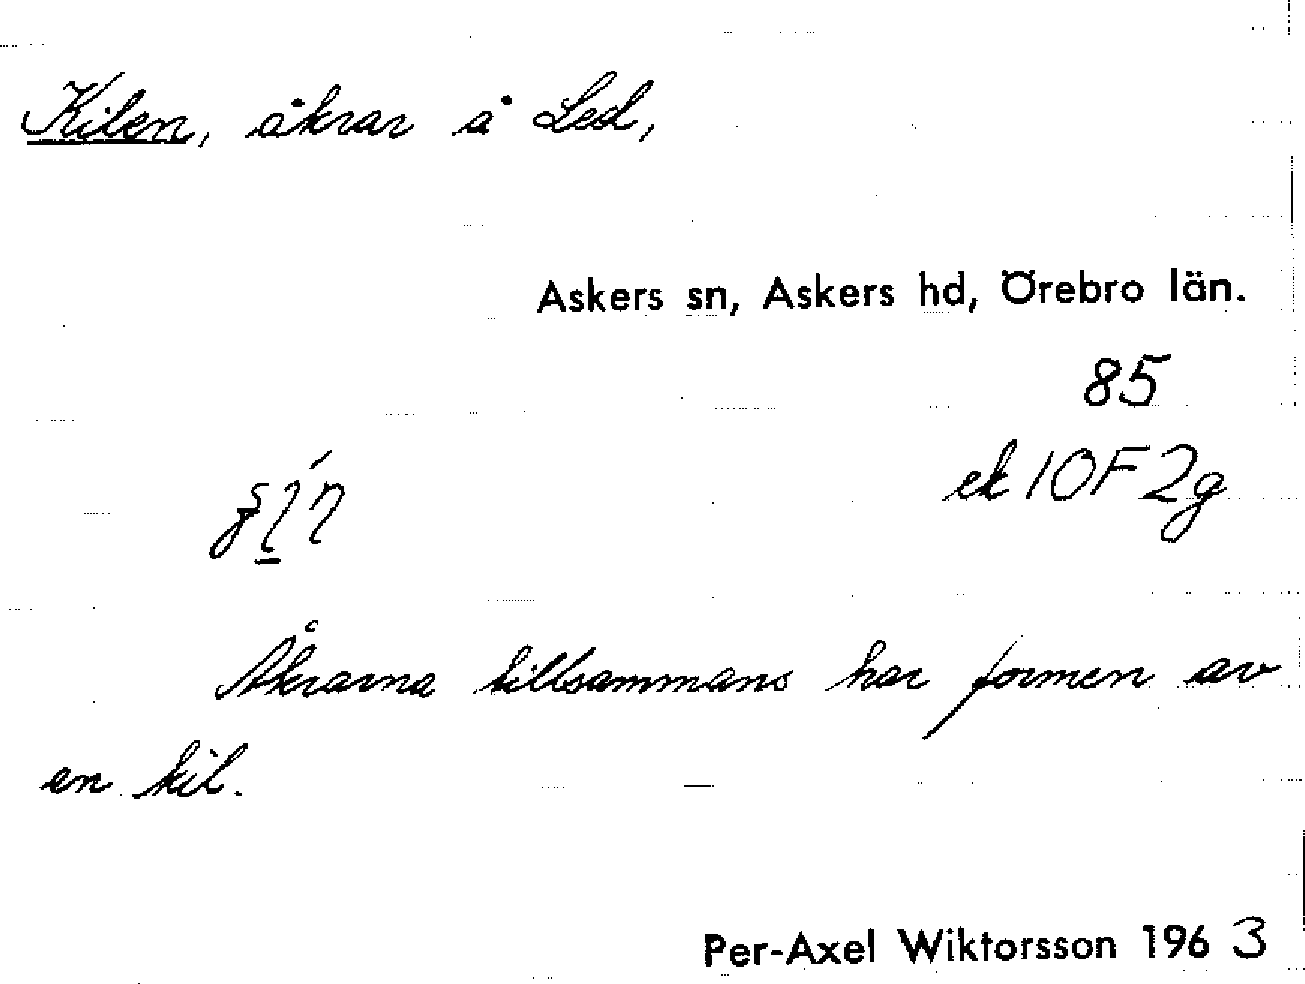 Kilen, åkrar å Led,
Askers sn, Askers hd, Örebro län.
85
ek 10F 2g
Åkrarna tillsammans har formen av
en kil.
Per-Axel Wiktorsson 1963